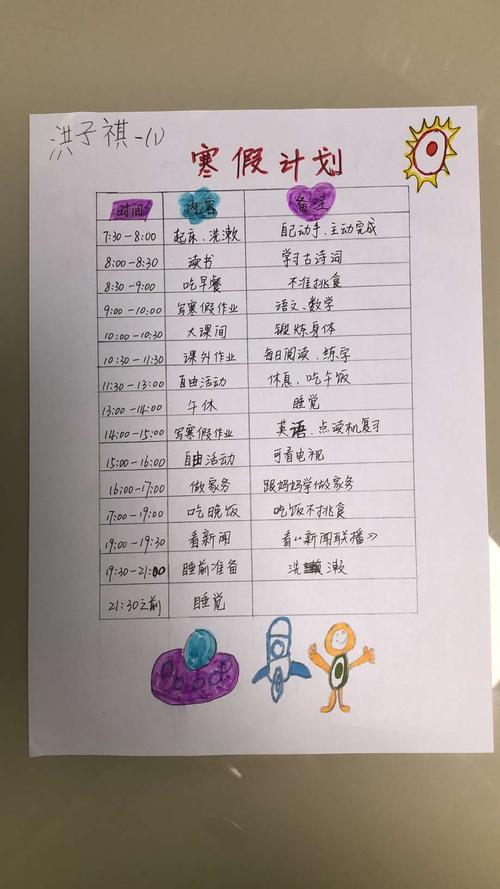 洪子祺-(1)
寒假计划
时间 内容 备注
7:30-8:00 起床、洗漱 自己动手、主动完成
8:00-8:30 读书 学习古诗词
8:30-9:00 吃早餐 不准挑食
9:00-10:00 写寒假作业 语文、数学
10:00-10:30 大课间 锻炼身体
10:30-11:30 课外作业 每日阅读、练字
11:30-13:00 自由活动 休息、吃午饭
13:00-14:00 午休 睡觉
14:00-15:00 写寒假作业 英语、点读机复习
15:00-16:00 自由活动 可看电视
16:00-17:00 做家务 跟妈妈学做家务
17:00-19:00 吃晚饭 吃饭不挑食
19:00-19:30 看新闻 看《新闻联播》
19:30-21:00 睡前准备 洗漱
21:30之前 睡觉